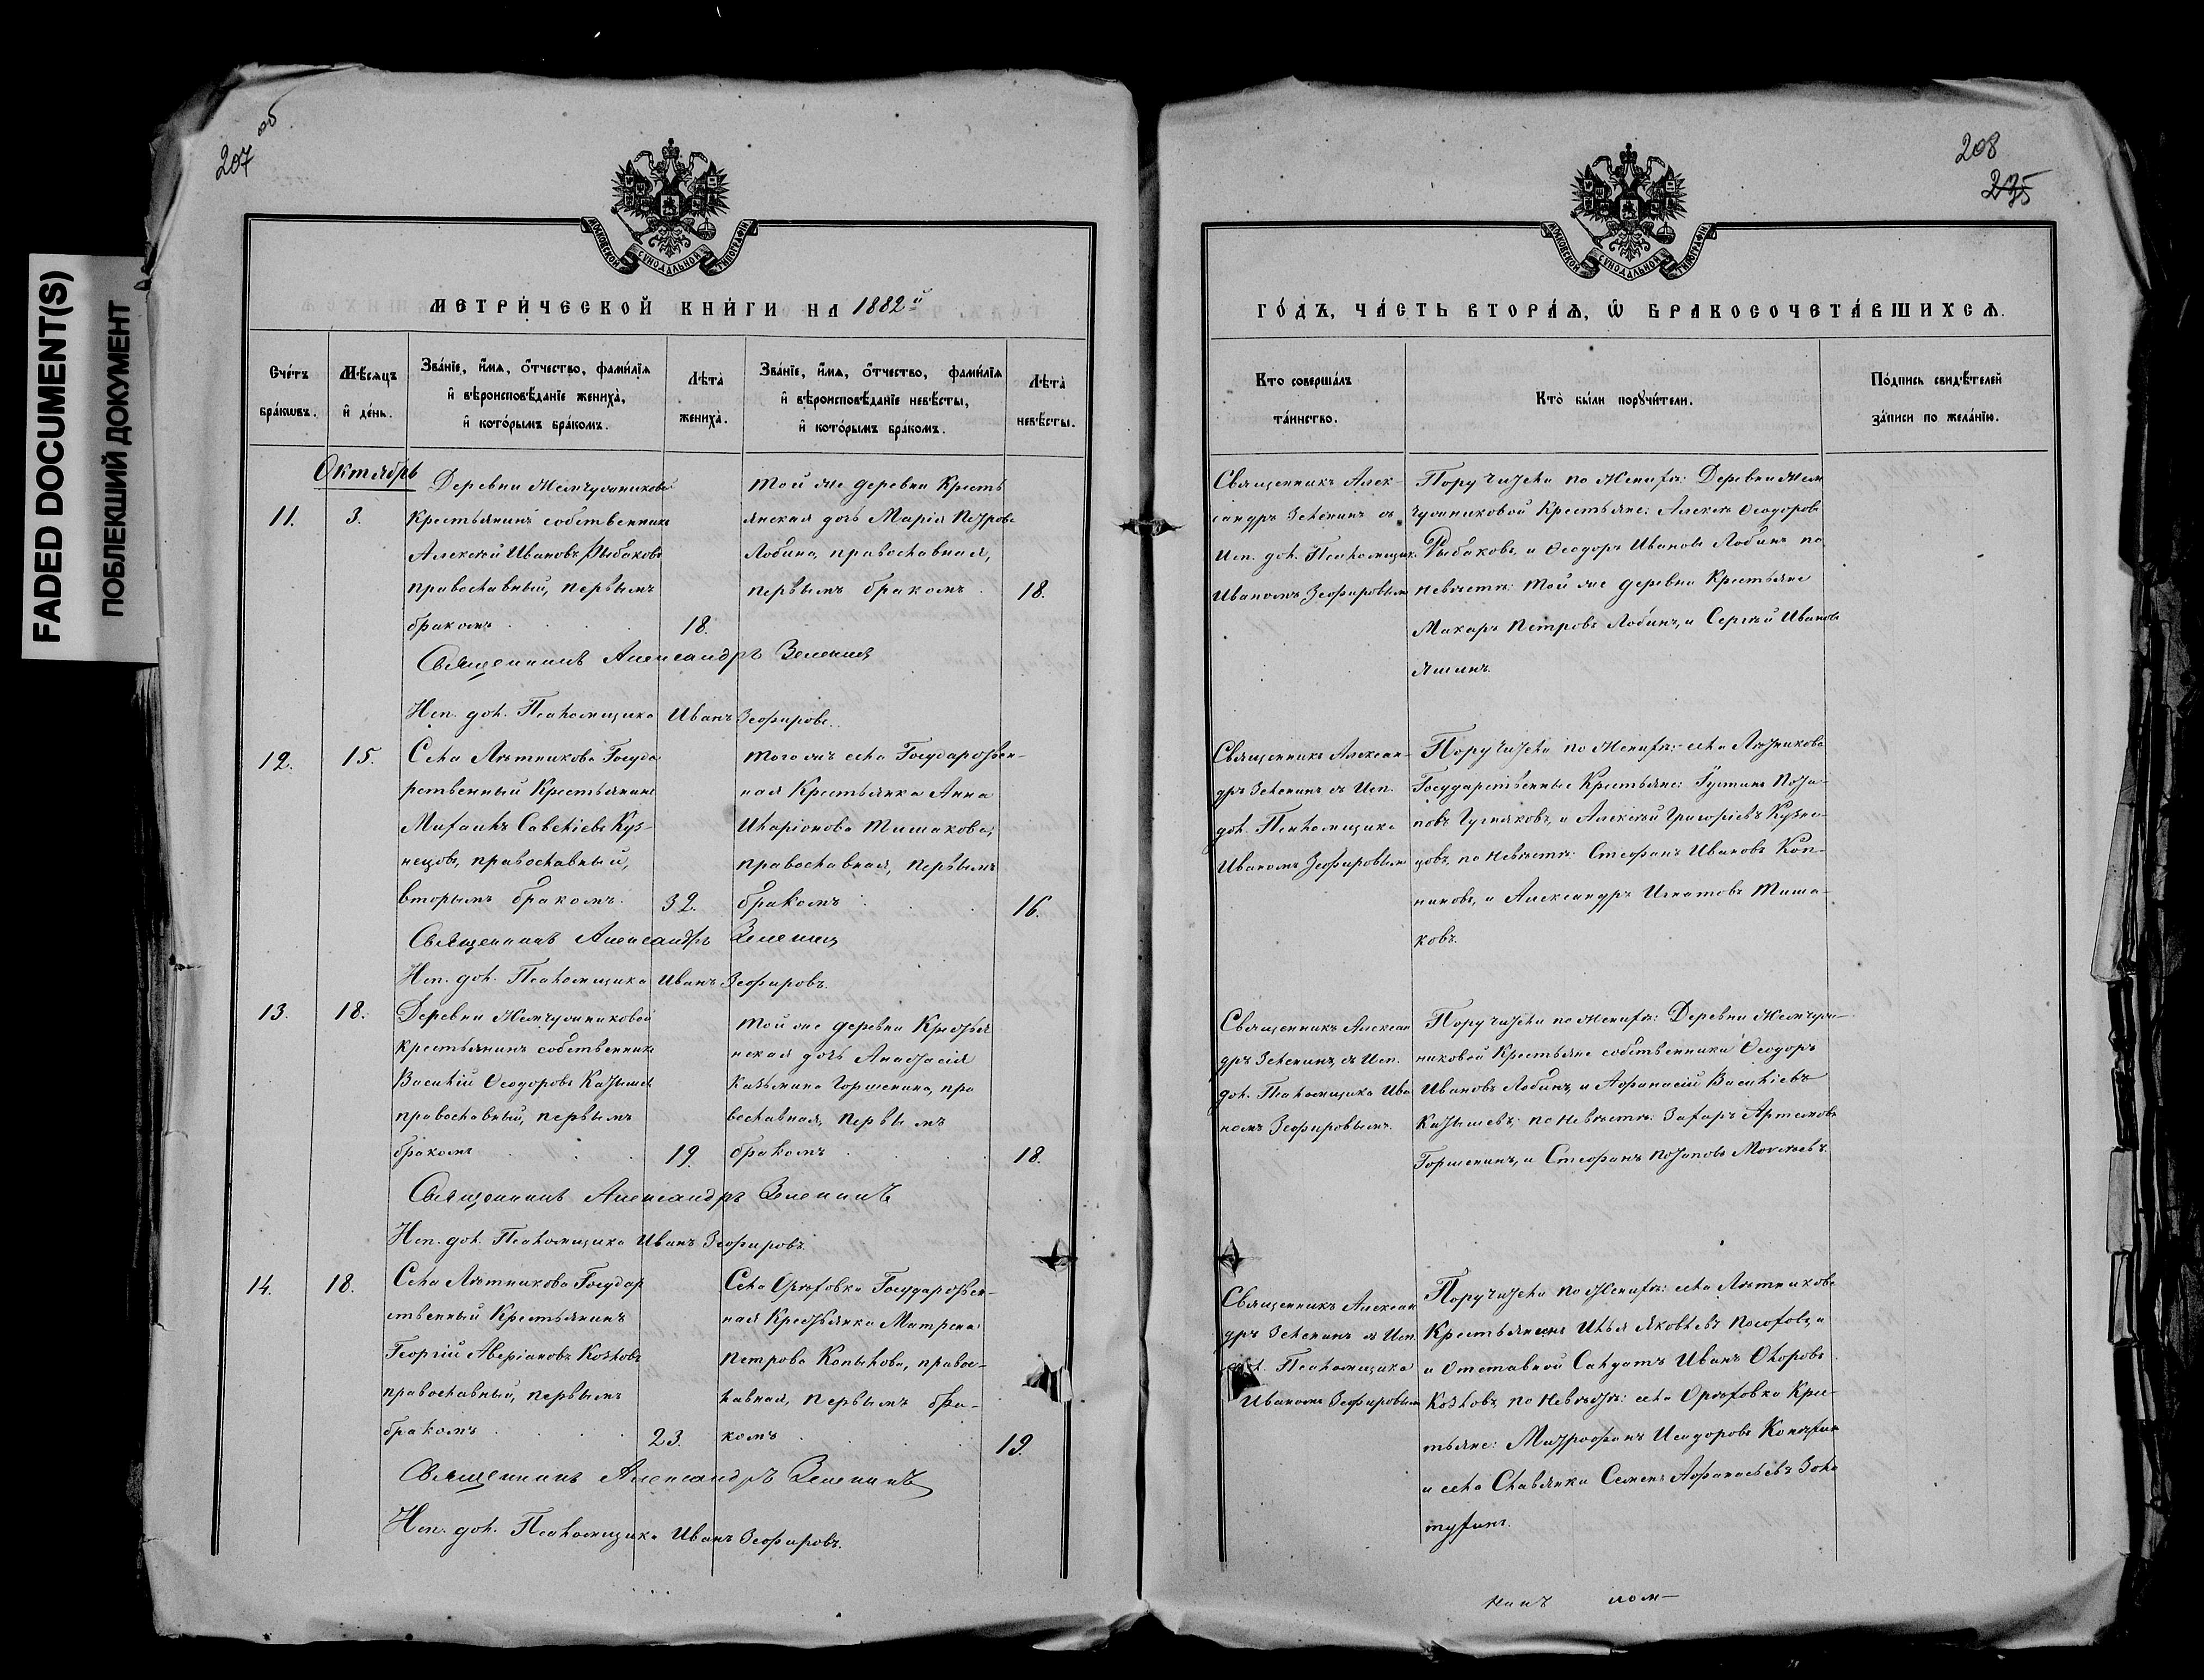 FADED DOCUMENT(S)
ПОБЛЕКШИЙ ДОКУМЕНТ
207 об
МОСКОВСКОЙ СѴНОДАЛЬНОЙ ТИПОГРАФІИ
МЕТРИ́ЧЕСКОЙ КНИ́ГИ НА 1882й
Сче́тъ бра́кѡвъ.
Мѣ́сяцъ и҆ де́нь.
Зва́ніе, и҆́мѧ, ѻ҆́тчество, фами́лїѧ
и҆ вѣроисповѣ́даніе жениха̀,
и҆ кото́рымъ бра́комъ.
Лѣта̀ жениха̀.
Зва́ніе, и҆́мѧ, ѻ҆́тчество, фами́лїѧ
и҆ вѣроисповѣ́даніе невѣ́сты,
и҆ кото́рымъ бра́комъ.
Лѣта̀ невѣ́сты.
Октябрь
11. 3.
Деревни Жемчужниковой
Крестьянинъ собственникъ
Алексѣй Ивановъ Рыбаковъ
православный, первымъ
бракомъ 18.
Той же деревни Кресть
янская дочь Марія Петрова
Лобина, православная,
первымъ бракомъ 18.
Священникъ Александръ Зеленинъ
Исп. дол. Псаломщика Иванъ Зефировъ.
12. 15.
Села Лѣтникова Госуда
рственный Крестьянинъ
Михаилъ Савельевъ Куз-
нецовъ, православный,
вторымъ бракомъ. 32.
Того жъ села Государствен-
ная Крестьянка Анна
Иларіонова Тишакова,
православная, первымъ
бракомъ 16.
Священникъ Александръ Зеленинъ
Исп. дол. Псаломщика Иванъ Зефировъ.
13. 18.
Деревни Жемчужниковой
крестьянинъ собственникъ
Василій Ѳеодоровъ
православный, первымъ
бракомъ 19.
Той же деревни Крестья
нская дочь Анастасія
Казьмина Горшенина, пра
вославная, первымъ
бракомъ 18.
Священникъ Александръ Зеленинъ
Исп. дол. Псаломщика Иванъ Зефировъ.
14. 18.
Села Лѣтникова Государ
ственный Крестьянинъ
Георгій Аверіановъ Козловъ
православный, первымъ
бракомъ 23.
Села Орѣховка Государствен-
ная Крестьянка Матрена
Петрова Копылова, правос-
лавная, первымъ бра-
комъ 19.
Священникъ Александръ Зеленинъ
Исп. дол. Псаломщика Иванъ Зефировъ.
208
235
МОСКОВСКОЙ СѴНОДАЛЬНОЙ ТИПОГРАФІИ
ГО́ДЪ, ЧА́СТЬ ВТОРА́Ѧ, Ѽ БРАКОСОЧЕТА́ВШИХСѦ.
Кто соверша́лъ
та́инство.
Кто̀ бы́ли порꙋчи́тели.
По́дпись свидѣ́телей
за́писи по жела́нію.
Священникъ Алек-
сандръ Зеленинъ съ
Исп. дол. Псаломщик.
Иваномъ Зефировым
Поручители по Женихѣ: Деревни Жем
чужниковой Крестьяне: Алексѣй Ѳеодоровъ
Рыбаковъ, и Ѳеодоръ Ивановъ Лобинъ по
Невѣстѣ: той же деревни Крестьяне
Макаръ Петровъ Лобинъ, и Сергѣй Ивановъ
Яшинъ.
Священникъ Алексан-
дръ Зеленинъ съ Исп.
дол. Псаломщика
Иваномъ Зефировым
Поручители по Женихѣ: села Лѣтникова
Государственные Крестьяне: Густинъ Пота-
повъ, и Алексѣй Григорьевъ Кузне-
цовъ, по Невѣстѣ: Стефанъ Ивановъ Коп-
ниновъ, и Александръ Игнатовъ Тиша-
ковъ.
Священникъ Алексан
дръ Зеленинъ, съ Исп.
дол. Псаломщика Ива
номъ Зефировымъ.
Поручители по Женихѣ: Деревни Жемчуж-
никовой Крестьяне собственники Ѳеодоръ
Ивановъ Лобинъ, и Аѳанасій Васильевъ
по Невѣстѣ: Захаръ Артемовъ
Горшенинъ, и Стефанъ Потаповъ
Священникъ Алексан
дръ Зеленинъ съ Исп.
дол. Псаломщика
Иваномъ Зефировым
Поручители по Женихѣ: села Лѣтникова
Крестьянинъ Илья Яковлевъ и
и Отставной Салдатъ Иванъ
Козловъ, по Невѣстѣ: села Орѣховка Кре-
стьяне: Митрофанъ Исидоровъ
и села Славянки Семенъ Аѳанасьевъ Золо
тухинъ.